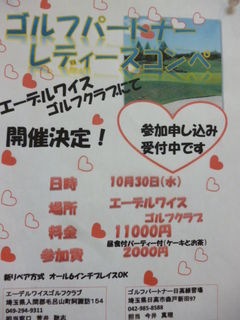 ゴルフパートナー
レディースコンペ
エーデルワイス
ゴルフクラブにて
開催決定!
参加申し込み
受付中です
日時 10月30日(水)
場所 エーデルワイス
ゴルフクラブ
料金 11000円
昼食付パーティー付(ケーキとお茶)
参加費 2000円
新リペア方式 オール6インチプレイスOK
エーデルワイスゴルフクラブ
埼玉県入間郡毛呂山町阿諏訪154
049-294-9311
担当窓口
ゴルフパートナー日高練習場
埼玉県日高市森戸新田97
042-985-8588
担当 今井 真理